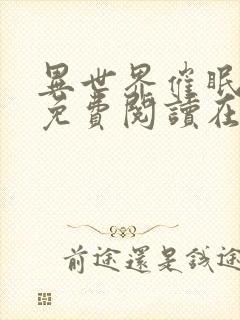 異世界催眠
免費閱讀在
前途還是錢途